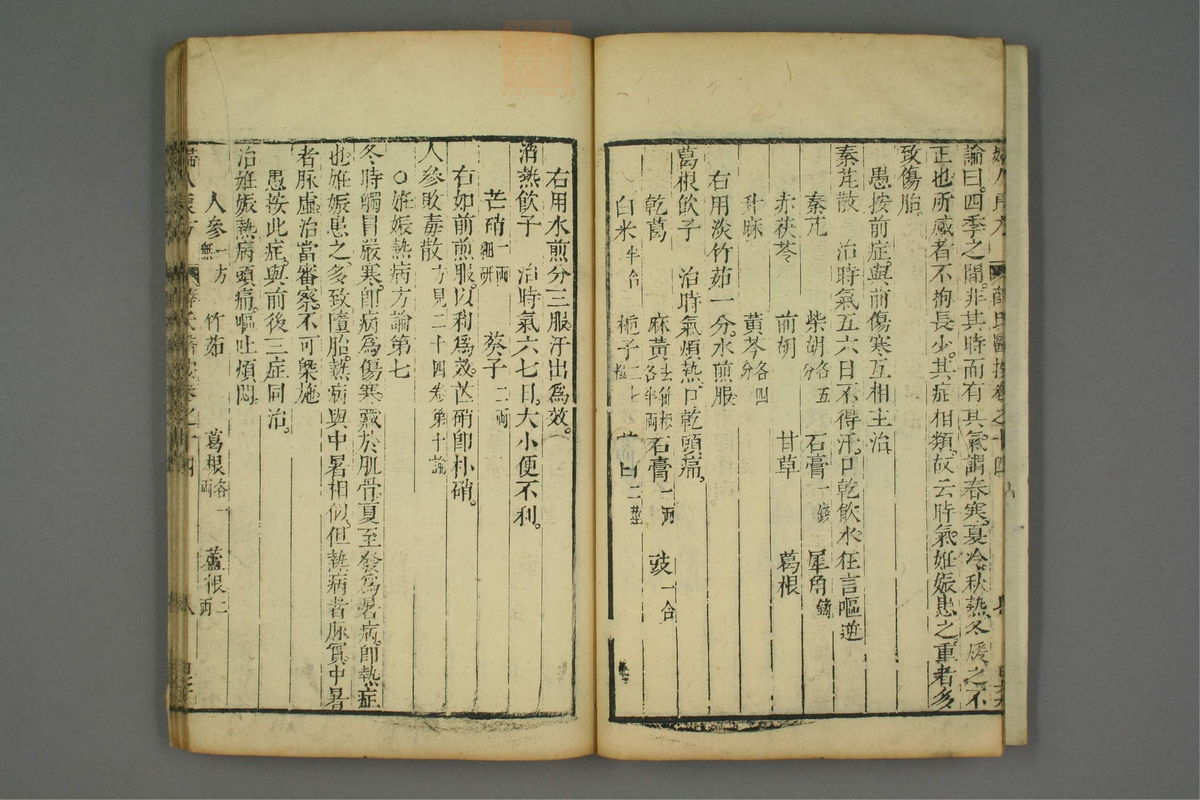 論曰。四季之間。非其時而有其氣。謂春寒。夏冷。秋熱。冬煖。之不
正也。所感者不拘長少。其症相類。故云時氣。妊娠患之。重者多
致傷胎。
愚按前症與前傷寒互相主治
秦芃散 治時氣五六日不得汗。口乾飲水。狂言嘔逆
秦芃 柴胡各五分 石膏一錢 犀角鎊
赤茯苓 前胡 甘草 葛根
升麻 黃芩各四分
右用淡竹茹一分。水煎服
葛根飲子 治時氣煩熱。口乾頭痛。
乾葛 麻黃去節根各半兩 石膏一兩 豉一合
白米半合 梔子二七枚 二莖
右用水煎分三服汗出爲效。
消熱飲子 治時氣六七日。大小便不利。
芒硝一兩細研 葵子二兩
右如前煎服。以利爲效。芒硝卽朴硝。
人參敗毒散方見二十四卷第十論
○妊娠熱病方論第七
冬時觸冒嚴寒。卽病爲傷寒。藏於肌骨。夏至發爲暑病。卽熱症
也妊娠患之。多致墮胎。熱病與中暑相似。但熱病者脉實。中暑
者脉虛治當審察。不可槩施
愚按此症。與前後三症同治。
治妊娠熱病頭痛。嘔吐煩悶。
人參一方無 竹茹 葛根各一兩 蘆根二兩